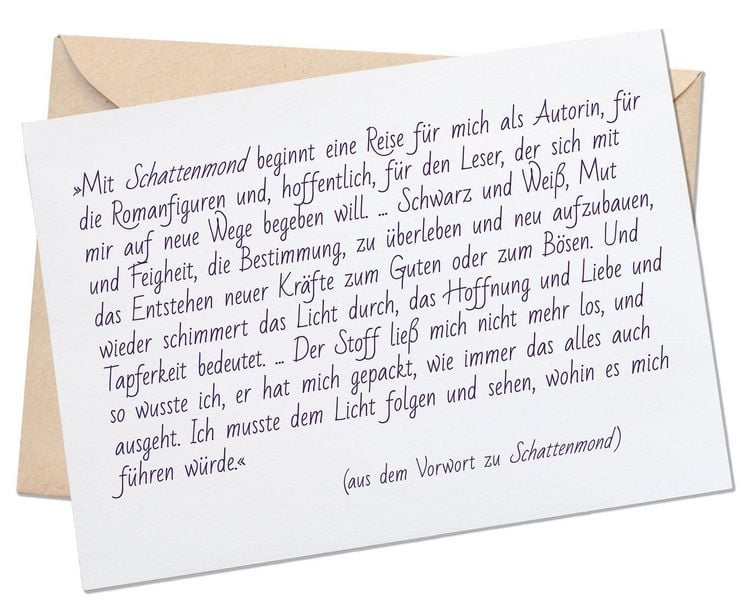 »Mit Schattenmond beginnt eine Reise für mich als Autorin, für
die Romanfiguren und, hoffentlich, für den Leser, der sich mit
mir auf neue Wege begeben will. ... Schwarz und Weiß, Mut
und Feigheit, die Bestimmung, zu überleben und neu aufzubauen,
das Entstehen neuer Kräfte zum Guten oder zum Bösen. Und
wieder schimmert das Licht durch, das Hoffnung und Liebe und
Tapferkeit bedeutet. ... Der Stoff ließ mich nicht mehr los, und
so wusste ich, er hat mich gepackt, wie immer das alles auch
ausgeht. Ich musste dem Licht folgen und sehen, wohin es mich
führen würde.«
(aus dem Vorwort zu Schattenmond)